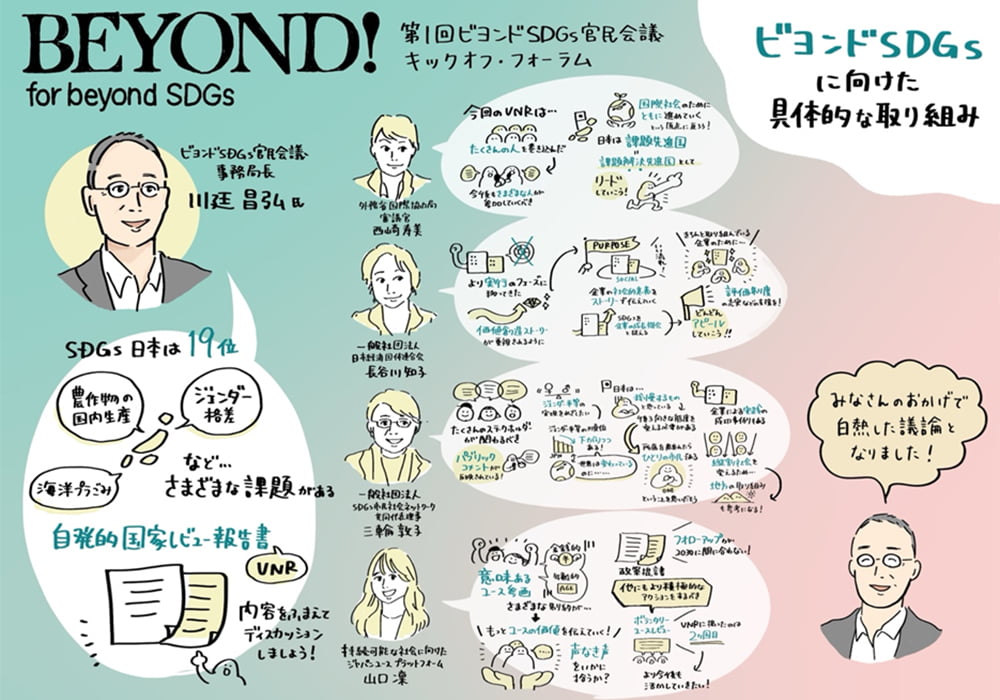 BEYOND!
for beyond SDGs
第1回ビヨンドSDGs官民会議
キックオフ・フォーラム
ビヨンドSDGs
に向けた
具体的な取り組み
ビヨンドSDGs官民会議
事務局長
川廷 昌弘 氏
SDGs 日本は 19位
農作物の
国内生産
ジェンダー
格差
海洋プラごみ
など…
さまざまな課題がある
自発的国家レビュー報告書
VNR
内容をふまえて
ディスカッション
しましょう!
外務省国際協力局
審議官
西崎寿美
今回のVNRは…
たくさんの人を巻き込んだ
今後もさまざまな人が
参加していくべき
国際社会のために
ともに進めていく
という原点に戻ろう!
日本は課題先進国
課題解決先進国として
リード
していこう!
一般社団法人
日本経済団体連合会
長谷川知子
より実行のフェーズに
移ってきた
価値創造ストーリー
が重視されるように
PURPOSE
SOCIAL
企業の社会的意義を
ストーリーで伝えていく
SDGsを
企業の成長機会
と捉える
きちんと取り組んでいる
企業のために…
評価制度
どんどん
アピール
していこう!!
一般社団法人
SDGs市民社会ネットワーク
共同代表理事
三輪敦子
たくさんのステークホルダー
が関わるべき
パブリック
コメントが
反映されている!
ジェンダー平等の
ジェンダー平等の順位
下がりつつ
ある!
世界は変わっている
のに……
日本は…
ひとりの市民である
ONE
ということを思いだそう
企業による実践の
成功事例もある
縦割り社会を
変えるため…
地方の取り組み
も参考になる!
持続可能な社会に向けた
ジャパンユースプラットフォーム
山口 凜
意味ある
ユース参画
金銭的
AGE
さまざまな取り組みが…
もっとユースの価値を伝えていく!
声なき声
をいかに
拾うか?
政策提言
フォローアップが
2030に間に合わない!
他にもより積極的な
アクションをするべき
ボランタリー
ユースレビュー
VNRに携わったのは
2回目
より今後も
活かしていきたい!
みなさんのおかげで
白熱した議論と
なりました!